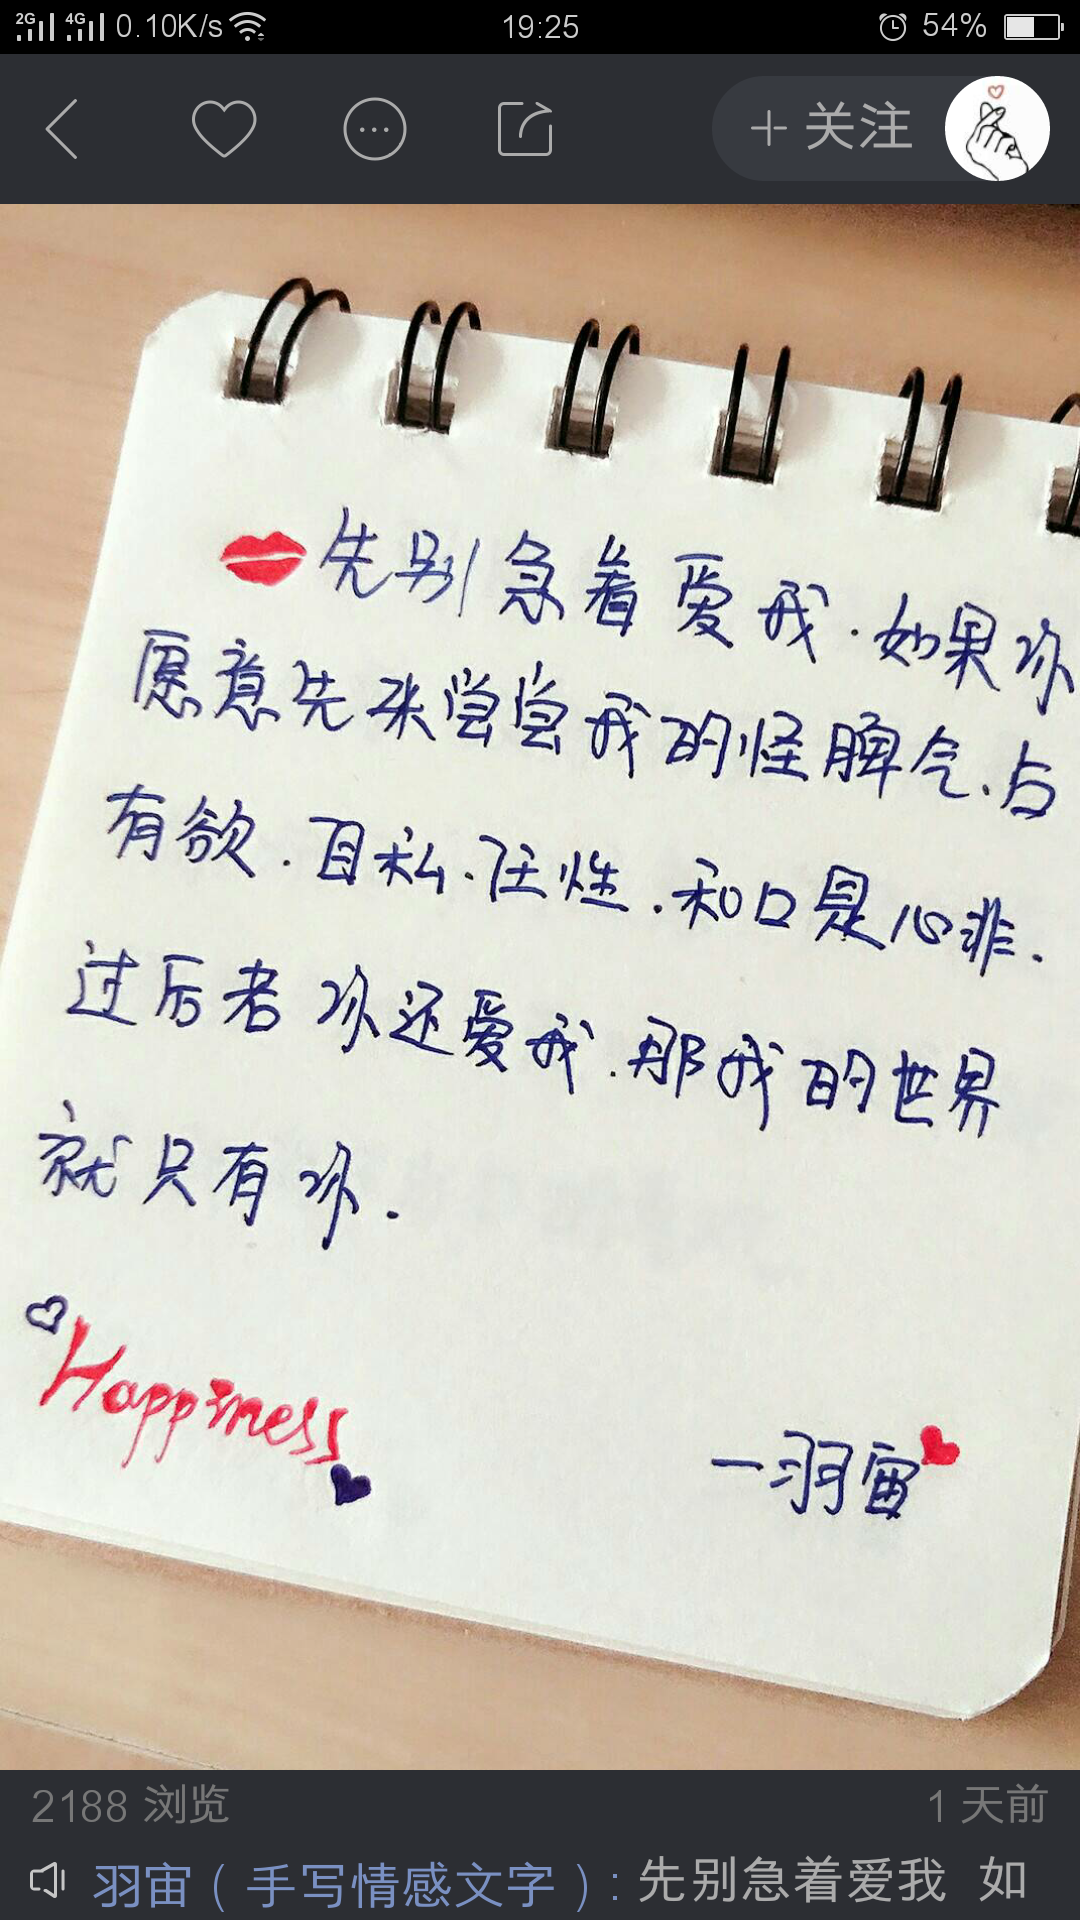 2G 4G 0.10K/s 19:25 54%
+ 关注
先别急着爱我.如果你
愿意先来尝尝我的怪脾气.占
有欲.自私.任性.和口是心非.
过后者你还爱我.那我的世界
就只有你.
Happiness
一羽宙
2188 浏览 1 天前
羽宙(手写情感文字): 先别急着爱我 如